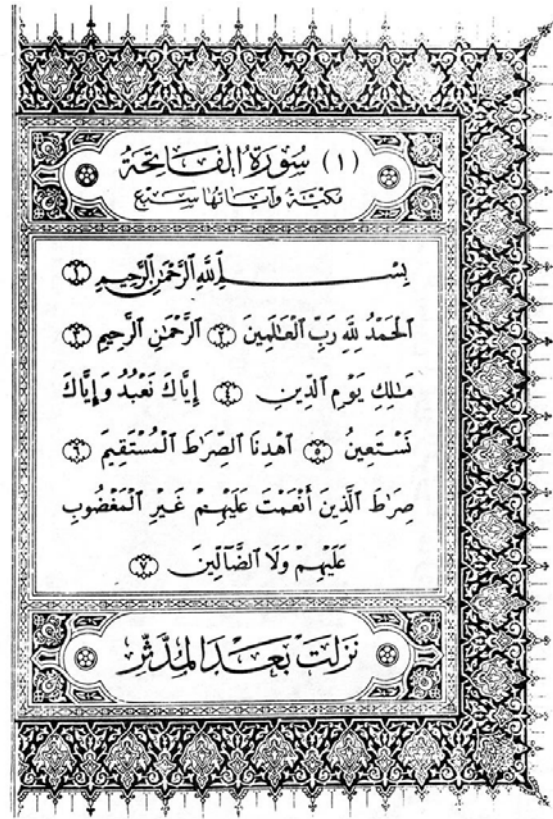 (١) سُورَةُ الفَاتِحَةُ
مكيّة وآياتها سبع
بِسْمِ ٱللَّهِ ٱلرَّحْمَٰنِ ٱلرَّحِيمِ ۝١
ٱلْحَمْدُ لِلَّهِ رَبِّ ٱلْعَٰلَمِينَ ۝٢ ٱلرَّحْمَٰنِ ٱلرَّحِيمِ ۝٣
مَٰلِكِ يَوْمِ ٱلدِّينِ ۝٤ إِيَّاكَ نَعْبُدُ وَإِيَّاكَ
نَسْتَعِينُ ۝٥ ٱهْدِنَا ٱلصِّرَٰطَ ٱلْمُسْتَقِيمَ ۝٦
صِرَٰطَ ٱلَّذِينَ أَنْعَمْتَ عَلَيْهِمْ غَيْرِ ٱلْمَغْضُوبِ
عَلَيْهِمْ وَلَا ٱلضَّآلِّينَ ۝٧
نَزلَت بَعْدَ المُدَّثِّر